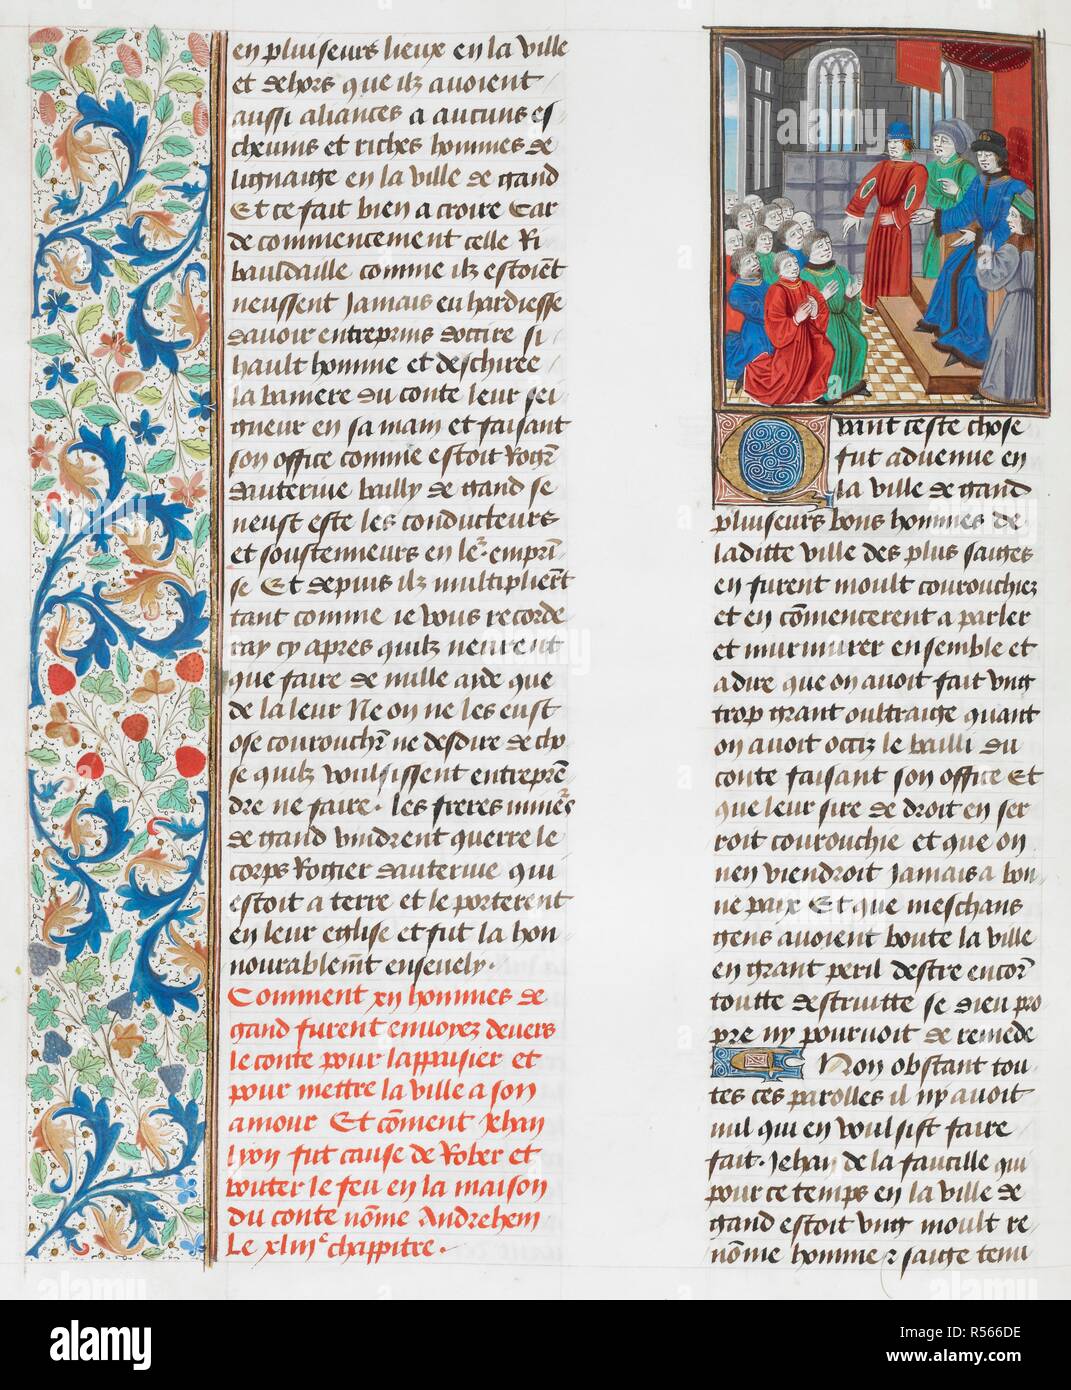 en pluiseurs lieux en la ville
et dehors que ilz avoient
aussi aliances a aucuns es
chevins et riches hommes de
lignaige en la ville de gand
Et ce fait bien a croire Car
de commencement celle Ri
bauldaille comme ilz estoiẽt
neussent Jamais eu hardiesse
davoir entreprins doccire si
hault homme et deschiree
la baniere du conte leur sei
gneur en sa main et faisant
son office comme estoit Rogr̃
dauterive bailly de gand se
neust este les conducteurs
et soustenneurs en le.r emprin̄
se Et depuis ilz multiplierẽt
tant comme ie vous recorde
ray cy apres quilz neurent
que faire de nulle aide que
de la leur Ne on ne les eust
ose courouchr̃ ne desdire de cho
se quilz voulsissent entreprẽ
dre ne faire. Les freres mineꝛs
de gand vindrent querre le
corps Rogier dauterive qui
estoit a terre et le porterent
en leur eglise et fut la hon
nourablemt̃ ensevely.
Comment xij hommes de
gand furent envoyez devers
le conte pour lappaisier et
pour mettre la ville a son
amour Et cõment Jehan
lyon fut cause de Rober et
bouter le feu en la maison
du conte nõme Andrehem
Le xliij.e chappitre.
Quant ceste chose
fut advenue en
la ville de gand
pluiseurs bons hommes de
laditte ville des plus saiges
en furent moult courouchiez
et en cõmencerent a parler
et murmurer ensemble et
a dire que on avoit fait ung
trop grant oultraige quant
on avoit occiz le bailli du
conte faisant son office Et
que leur sire de droit en ser
roit courouchie et que on
nen viendroit Jamais a bon
ne paix Et que meschans
gens avoient boute la ville
en grant peril destre encor̃
toutte destruitte se dieu pro
pre ny pourvoit de remede
Non obstant tou
tes ces parolles il ny avoit
nul qui en voulsist faire
fait. Jehan de la faucille qui
pour ce temps en la ville de
gand estoit ung moult re
nõme homme ꝛ saige tenu
alamy
Image ID: R566DE
www.alamy.com